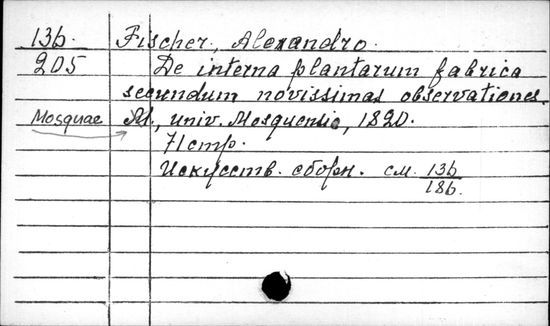 13b. Fischer, Alexandro.
205 De interna plantarum fabrica
secundum novissimas observationes.
Mosquae M., univ. Mosquensis, 1820.
71 стр.
Искусств. сборн. см. 13b
18b.